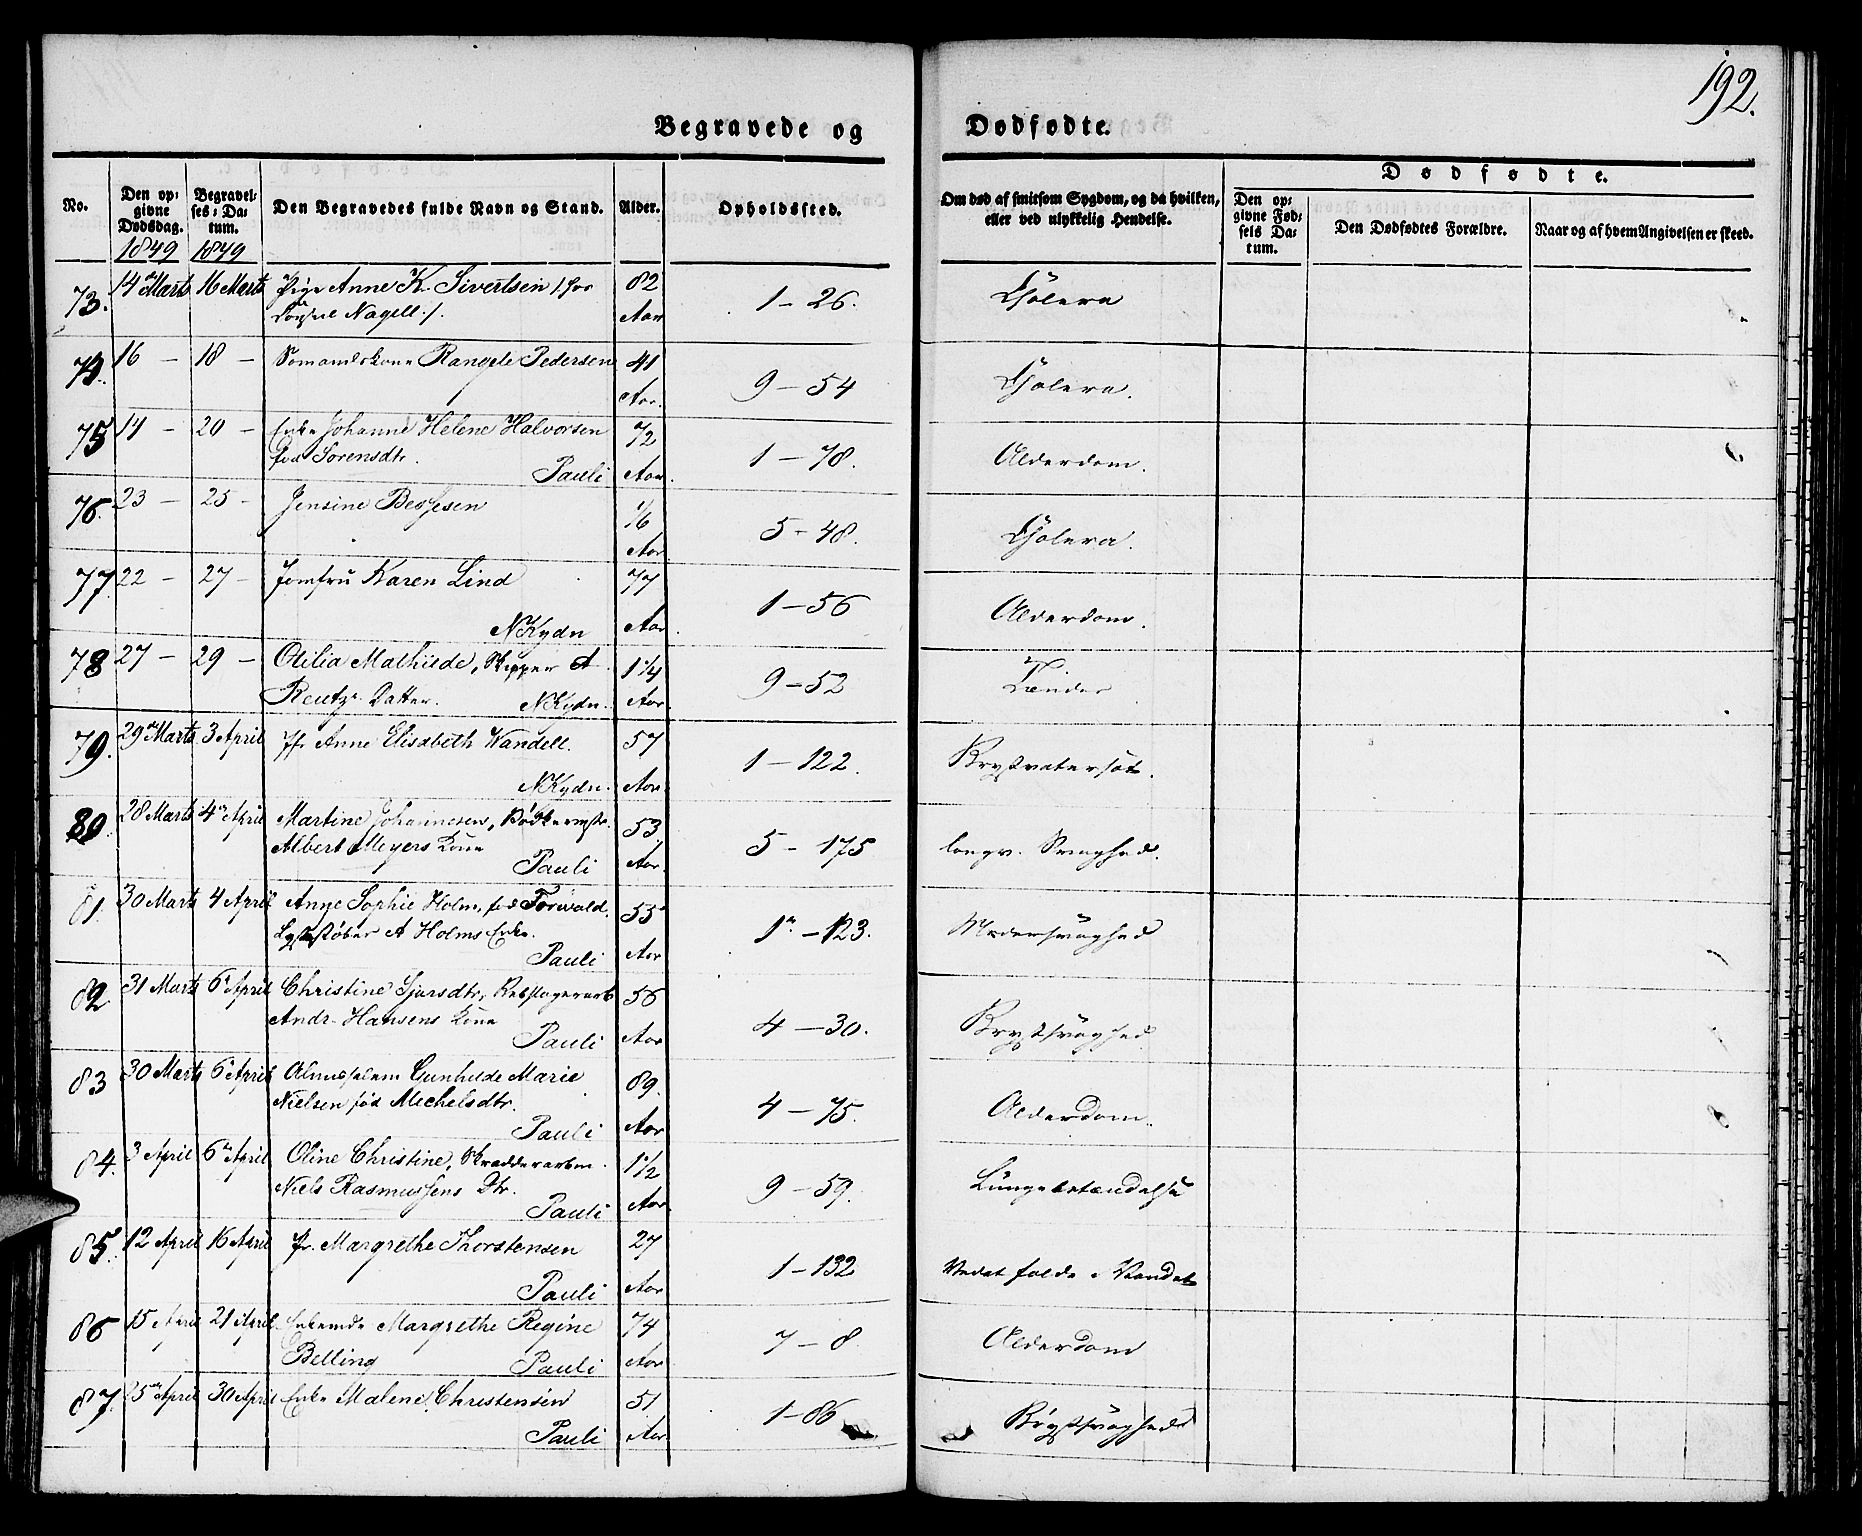 192.
Begravede og Dødfødte.
No.
Den opgivne Dødsdag.
1849
Begravelses-Datum.
1849
Den Begravedes fulde Navn og Stand.
Alder.
Opholdssted.
Om død af smitsom Sygdom, og da hvilken, eller ved ulykkelig Hendelse.
Dødfødte.
Den opgivne Fødsels Datum.
Den Dødfødtes Forældre.
Naar og af hvem Angivelsen er skeed.
73. 14de Marts 16 Marts Pige Anne K. Sivertsen 82 Aar 1 - 26. Cholera
Nagell ./.
74. 16 - 18 - Sømandskone Rangele Pedersen 41 Aar. 9 - 54 Cholera.
75 14 - 20 - Enke Johanne Helene Halvorsen 72 Aar. 1 - 78. Alderdom.
fød Sørensdtr. Pauli
76. 23 - 25 - Jensine Bessesen 1/6 Aar 5 - 48. Cholera.
77. 22 - 27 - Jomfru Karen Lind 77 Aar. 1 - 56 Alderdom.
NKydn
78 27 - 29 - Otilia Mathilde, Skipper A 1 1/4 Aar. 9 - 52 Tænder
Reutz Datter. NKydn.
79. 29de Marts 3 April Jfr Anne Elisabeth Wandell. 57 Aar 1 - 122. Brystvatersot.
NKydn.
80. 28 Marts 4de April Martine Johannesen, Bødkermstr. 53 Aar. 5 - 175 langv. Svaghed.
Albert Meyers Kone Pauli
81. 30 Marts 4 April Anne Sophie Holm, fød Forwald. 55 Aar 1 - 123. Modersvaghed
Lysestøber A Holms Enke. Pauli
82 31 Marts 6te April Christine Sjursdtr, Rebslagerarb 56 Aar 4 - 30. Brystsvaghed
Andr. Hansens Kone Pauli
83 30 Marts 6te April Almuslem Gunhilde Marie 89. Aar 4 - 75. Alderdom.
Nielsen fød Michelsdtr. Pauli
84. 3 April 6te April Oline Christine, Skrædderarben. 1 1/2 Aar. 9 - 59. Lungebetændelse
Niels Rasmussens Dtr. Pauli
85. 12 April 16 April Jfr. Margrethe Thorstensen 27 Aar 1 - 132 Vedat falde i Vandet
Pauli
86 15 April 21 April Enkemde Margrethe Regine 74 Aar 7 - 8. Alderdom
Belling Pauli
87. 25de April 30 April Enke Malene Christensen 51 Aar 1 - 86 Brystsvaghed
Pauli